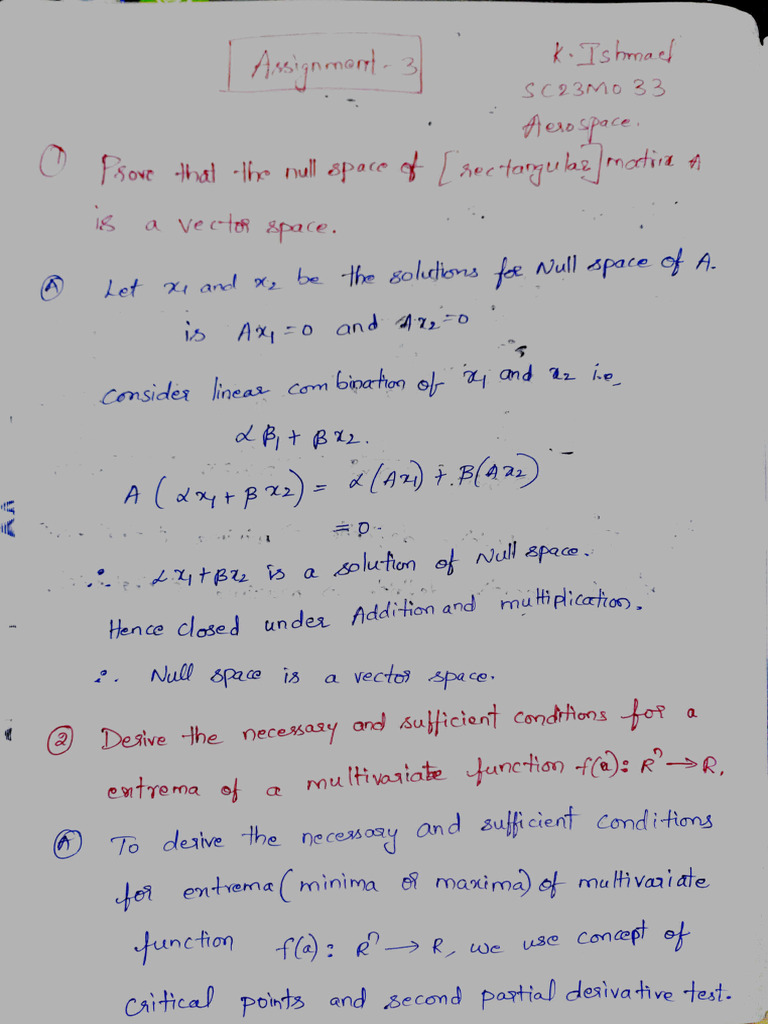 Assignment - 3
K. Ishmael
SC23M033
Aerospace.
① Prove that the null space of [rectangular] matrix A
is a vector space.
Ⓐ Let x₁ and x₂ be the solutions for Null space of A.
is Ax₁ = 0 and Ax₂ = 0
consider linear combination of x₁ and x₂ i.e,
αβ₁ + βx₂.
A (αx₁ + βx₂) = α(Ax₁) + β(Ax₂)
= 0.
∴ αx₁ + βx₂ is a solution of Null space.
Hence closed under Addition and multiplication.
∴ Null space is a vector space.
② Derive the necessary and sufficient conditions for a
extrema of a multivariate function f(a): Rⁿ → R.
Ⓐ To derive the necessary and sufficient conditions
for extrema (minima or maxima) of multivariate
function f(a): Rⁿ → R, we use concept of
critical points and second partial derivative test.